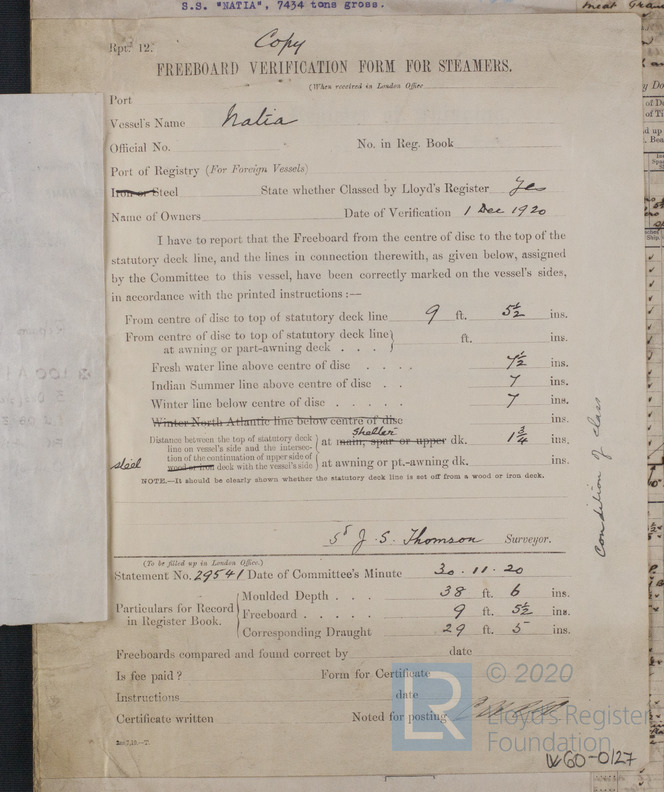 S.S. "NATIA", 7434 tons gross.
Rpt. 12.
Copy
FREEBOARD VERIFICATION FORM FOR STEAMERS.
(When received in London Office
Port
Vessel's Name Natia
Official No. No. in Reg. Book
Port of Registry (For Foreign Vessels)
Iron or Steel State whether Classed by Lloyd's Register Yes
Name of Owners Date of Verification 1 Dec 1920
I have to report that the Freeboard from the centre of disc to the top of the
statutory deck line, and the lines in connection therewith, as given below, assigned
by the Committee to this vessel, have been correctly marked on the vessel's sides,
in accordance with the printed instructions :—
From centre of disc to top of statutory deck line 9 ft. 5½ ins.
From centre of disc to top of statutory deck line
at awning or part-awning deck . . . ft. ins.
Fresh water line above centre of disc . . . . 7½ ins.
Indian Summer line above centre of disc . . 7 ins.
Winter line below centre of disc . . . . . 7 ins.
Winter North Atlantic line below centre of disc ins.
Distance between the top of statutory deck
line on vessel's side and the intersec-
tion of the continuation of upper side of
wood or iron deck with the vessel's side
steel
shelter
at main, spar or upper dk. 1¾ ins.
at awning or pt.-awning dk. ins.
NOTE.—It should be clearly shown whether the statutory deck line is set off from a wood or iron deck.
Condition of class
J. S. Thomson Surveyor.
(To be filled up in London Office.)
Statement No. 29541 Date of Committee's Minute 30.11.20
Particulars for Record
in Register Book.
Moulded Depth . . . 38 ft. 6 ins.
Freeboard . . . . . 9 ft. 5½ ins.
Corresponding Draught 29 ft. 5 ins.
Freeboards compared and found correct by date
Is fee paid ? Form for Certificate
Instructions date
Certificate written Noted for posting
© 2020
LR
Lloyd's Register
Foundation
W60-0127